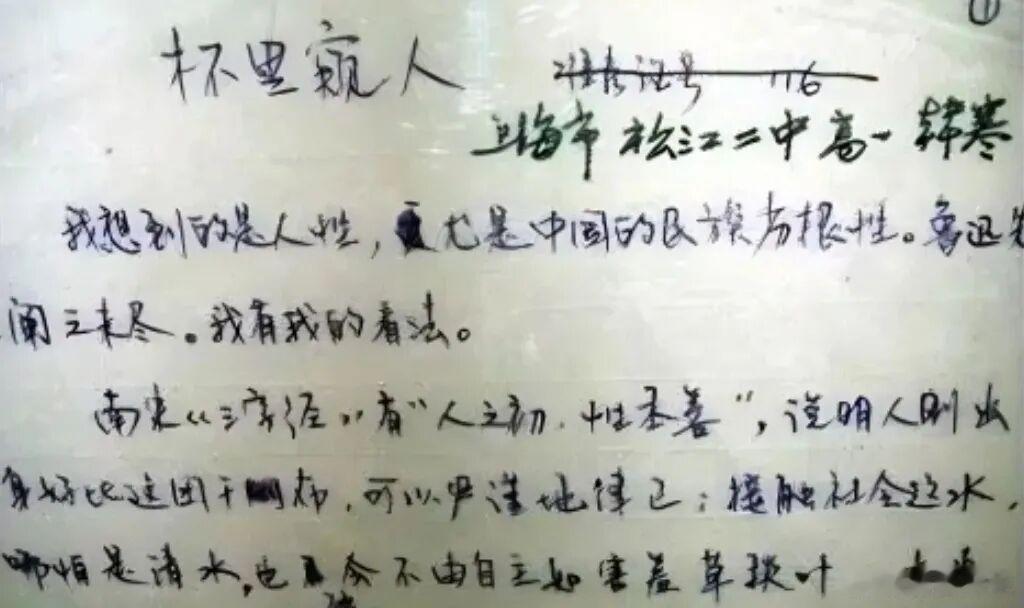 ①
杯里窥人
准考证号 116
上海市 松江二中 高一 韩寒
我想到的是人性，尤是中国的民族劣根性。鲁迅先
阐之未尽。我有我的看法。
南宋《三字经》有“人之初，性本善”，说明人刚出
身好比这团干布，可以严谨地律己；接触社会这水，
哪怕是清水，也会不由自主如害羞草叶